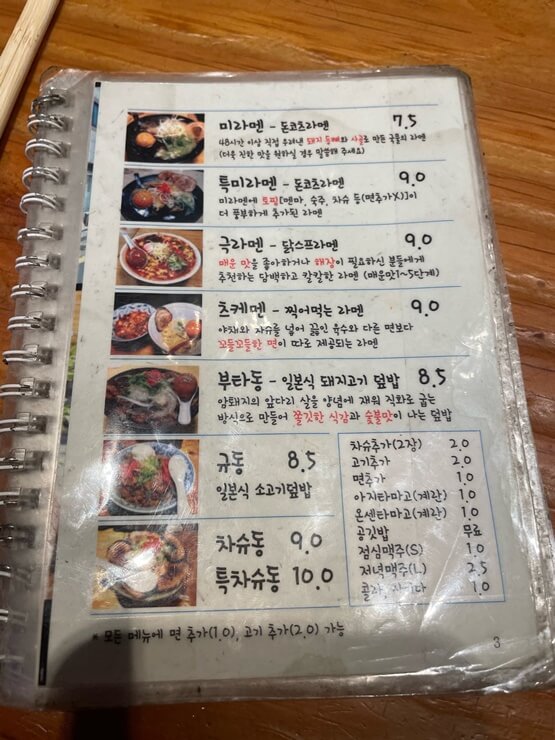 미라멘 - 돈코츠라멘 7.5
48시간 이상 직접 우려낸 돼지 등뼈와 사골로 만든 국물의 라멘
(더욱 진한 맛을 원하실 경우 말씀해 주세요)
특미라멘 - 돈코츠라멘 9.0
미라멘에 토핑[멘마, 숙주, 차슈 등(면추가X)]이
더 풍부하게 추가된 라멘
극라멘 - 닭스프라멘 9.0
매운 맛을 좋아하거나 해장이 필요하신 분들에게
추천하는 담백하고 칼칼한 라멘 (매운맛1~5단계)
츠케멘 - 찍어먹는 라멘 9.0
야채와 차슈를 넣어 끓인 육수와 다른 면보다
꼬들꼬들한 면이 따로 제공되는 라멘
부타동 - 일본식 돼지고기 덮밥 8.5
암돼지의 앞다리 살을 양념에 재워 직화로 굽는
방식으로 만들어 쫄깃한 식감과 숯불맛이 나는 덮밥
규동 8.5
일본식 소고기덮밥
차슈동 9.0
특차슈동 10.0
차슈추가(2장) 2.0
고기추가 2.0
면추가 1.0
아지타마고(계란) 1.0
온센타마고(계란) 1.0
공깃밥 무료
점심맥주(S) 1.0
저녁맥주(L) 2.5
콜라, 사이다 1.0
* 모든 메뉴에 면 추가(1.0), 고기 추가(2.0) 가능
3